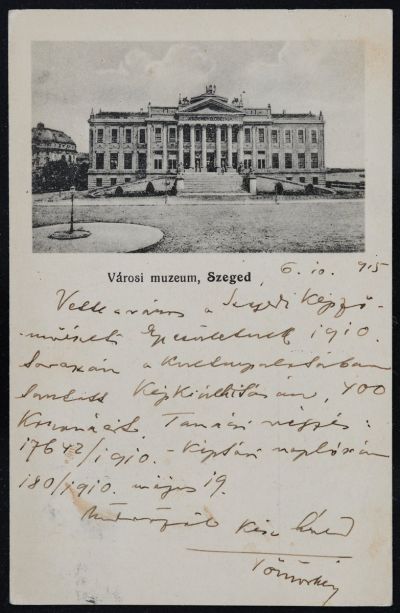 Városi muzeum, Szeged
6. 10. 915
Vette a város a Szegedi Képző-
művészeti Egyesületnek 1910.
a Kulturpalotában
Képkiállításán, 400
Koronáért. Tanácsi végzés:
17642/1910. - Képtári naplószám
180/1910. május 19.
kész híved
Tömörkény